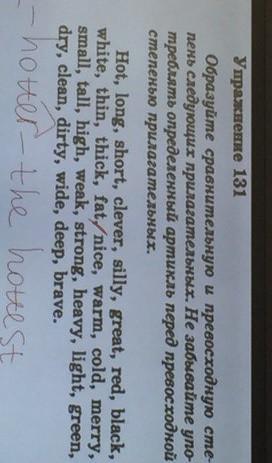 Упражнение 131
Образуйте сравнительную и превосходную сте-
пень следующих прилагательных. Не забывайте упо-
треблять определенный артикль перед превосходной
степенью прилагательных.
Hot, long, short, clever, silly, great, red, black,
white, thin, thick, fat, nice, warm, cold, merry,
small, tall, high, weak, strong, heavy, light, green,
dry, clean, dirty, wide, deep, brave.
- hotter - the hottest